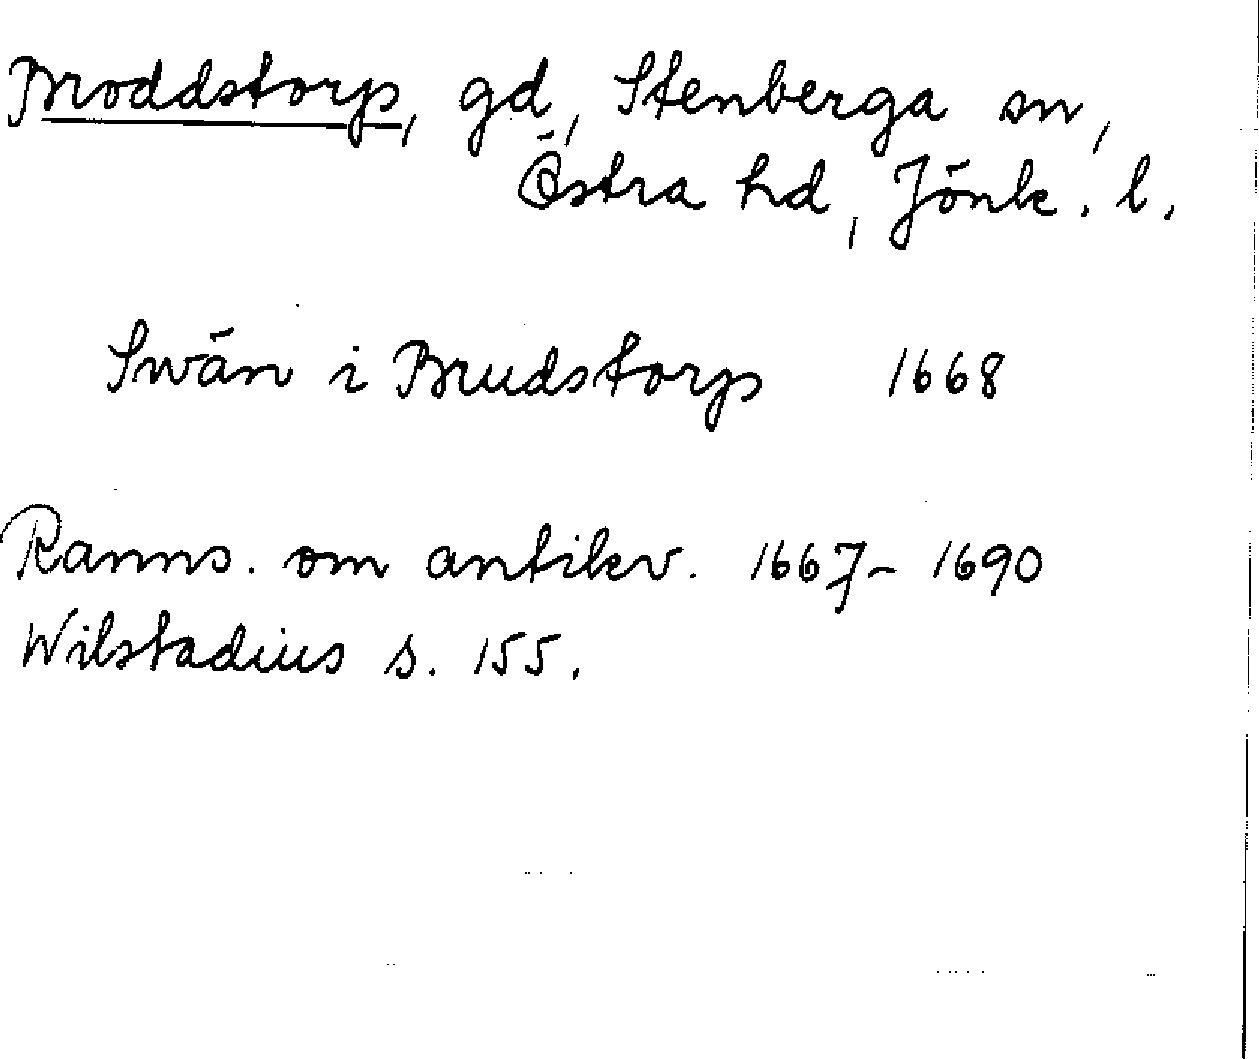 Broddstorp, gd, Stenberga sn,
Östra hd, Jönk. l.
Swän i Brudstorp 1668
Ranns. om antikv. 1667- 1690
Wilstadius s. 155.